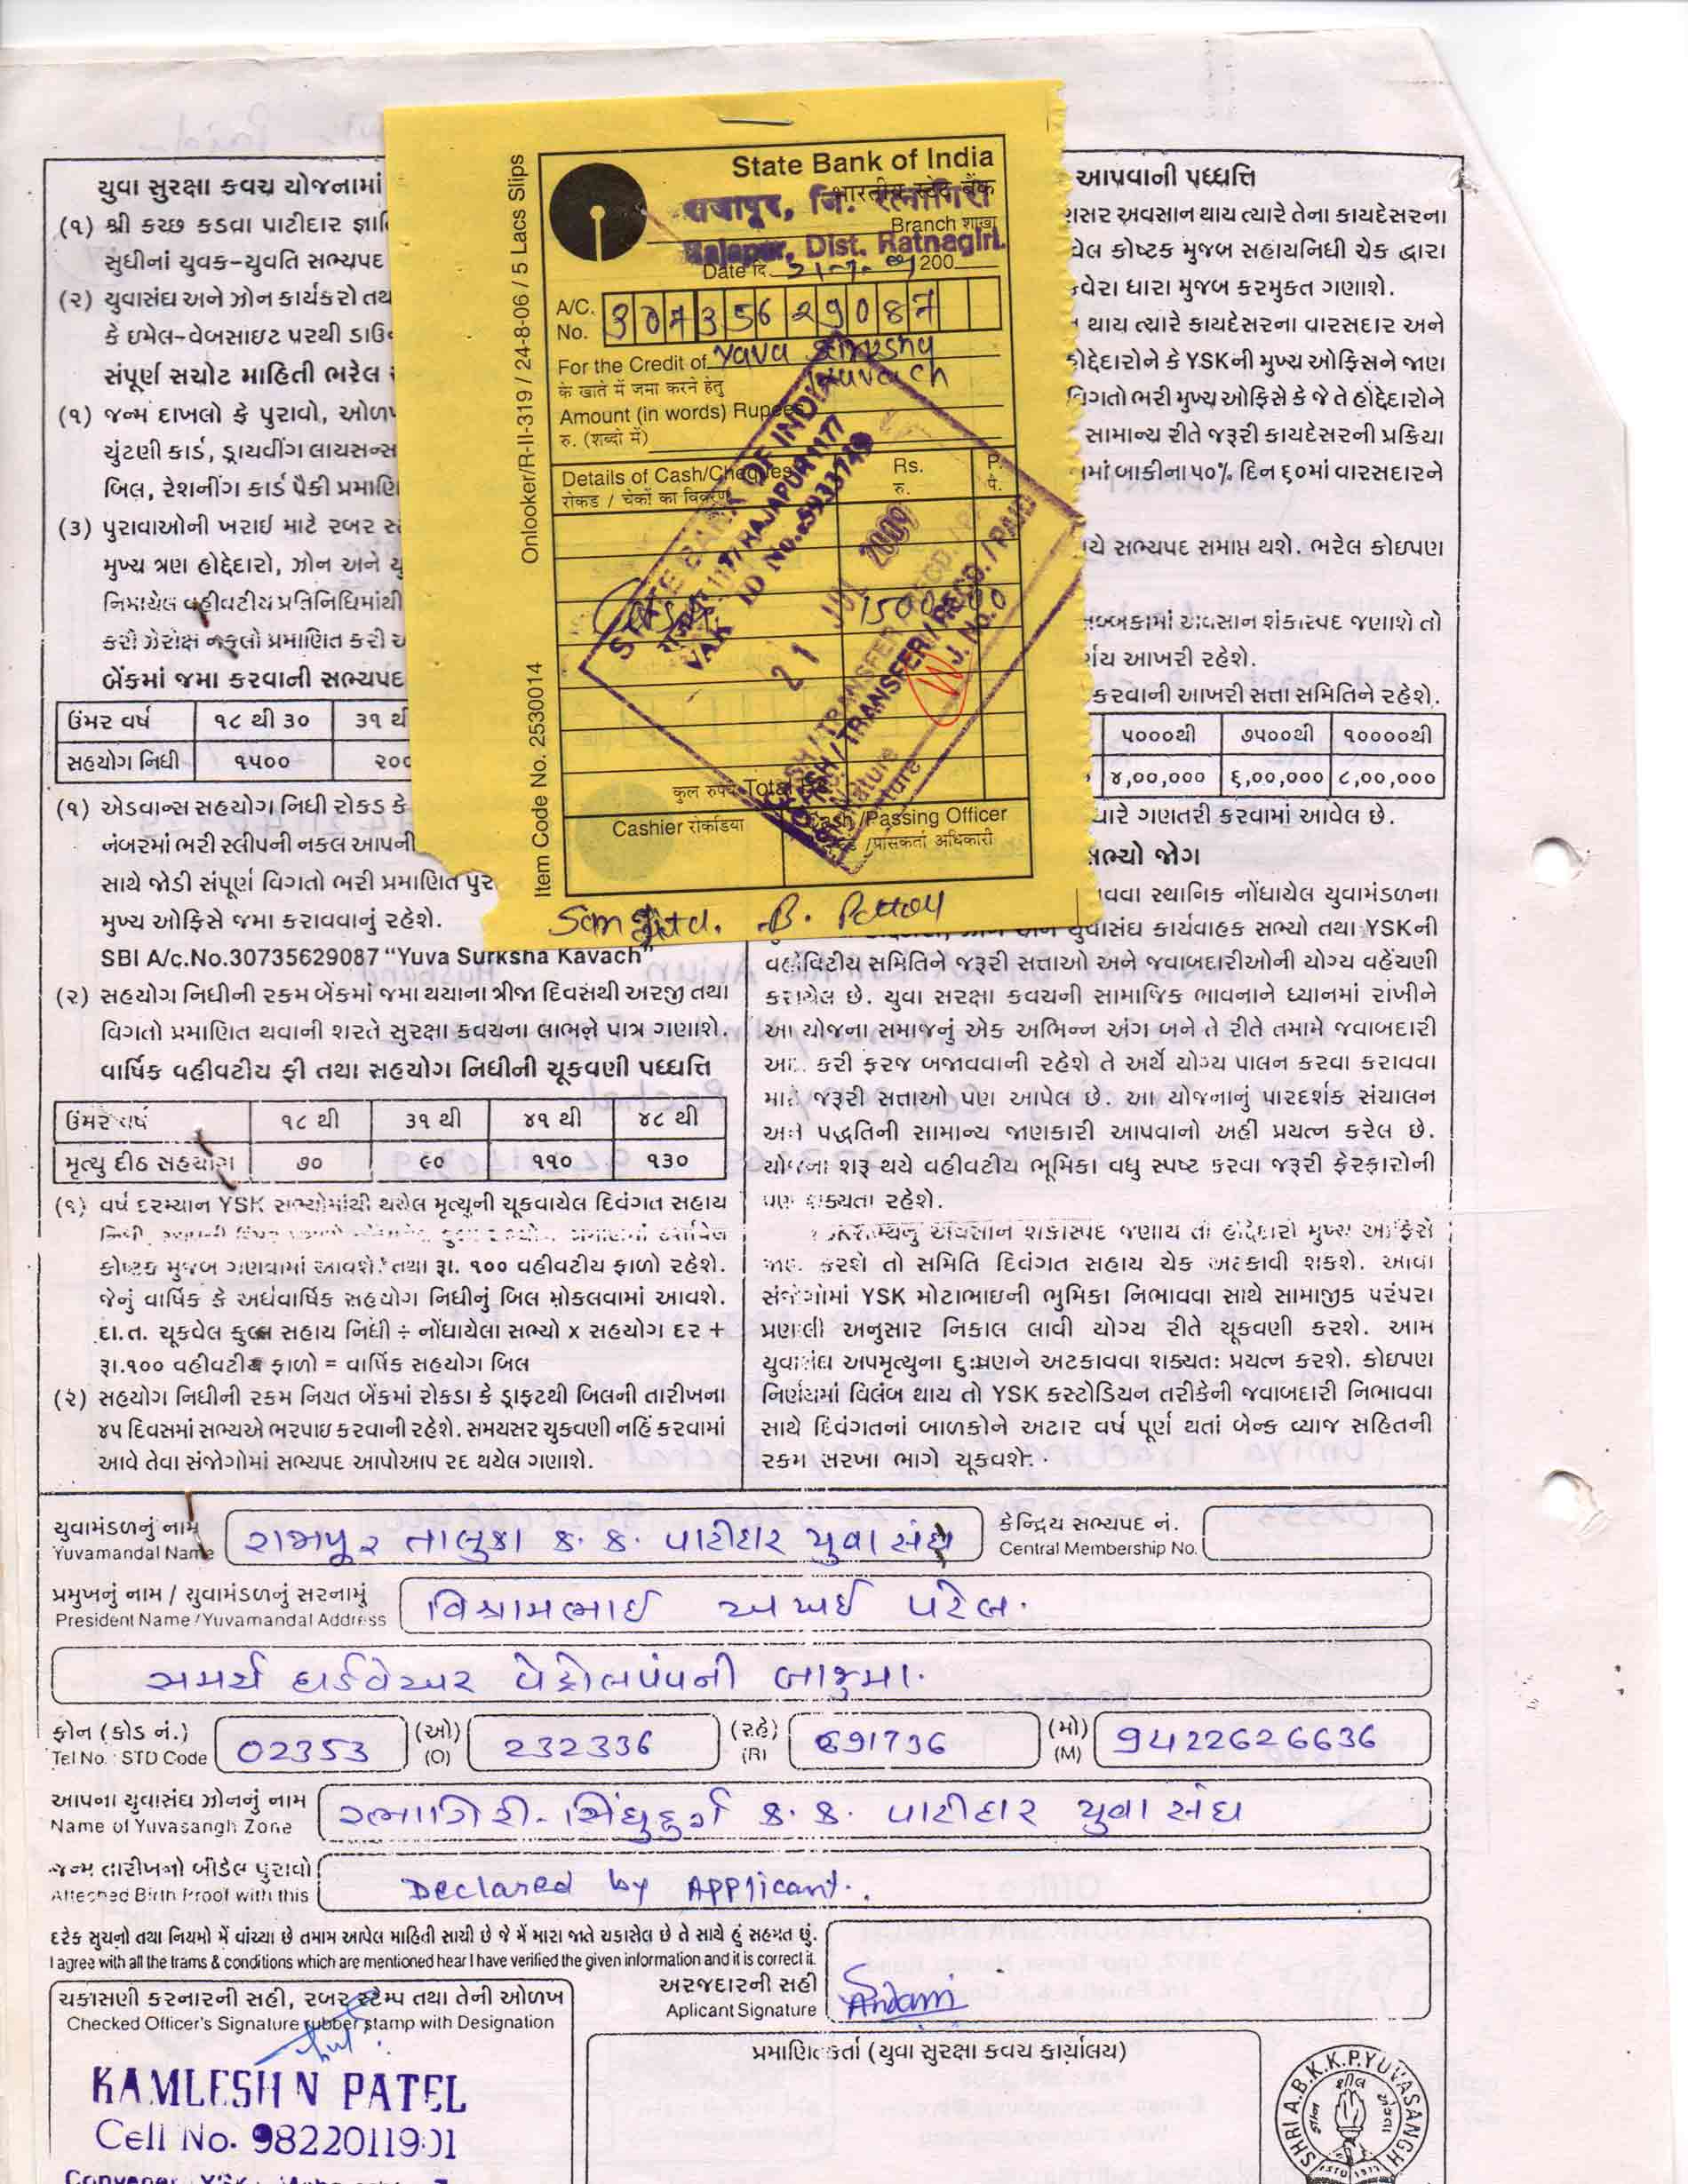 યુવા સુરક્ષા કવચ યોજનામાં
(૧) શ્રી કચ્છ કડવા પાટીદાર
સુધીનાં યુવક-યુવતિ સભ્યપદ
(૨) યુવાસંઘ અને ઝોન કાર્યકરો
કે ઇમેલ-વેબસાઇટ પરથી
સંપૂર્ણ સચોટ માહિતી ભરેલ
(૧) જન્મ દાખલો કે પુરાવો,
ચુંટણી કાર્ડ, ડ્રાયવીંગ લાયસન્સ
બિલ, રેશનીંગ કાર્ડ પૈકી
(૩) પુરાવાઓની ખરાઈ માટે રબર
મુખ્ય ત્રણ હોદ્દેદારો, ઝોન અને
નિમાયેલ વહીવટીય પ્રતિનિધિમાંથી
કરી ઝેરોક્ષ નકલો પ્રમાણિત કરી
બેંકમાં જમા કરવાની સભ્યપદ
ઉંમર વર્ષ ૧૮ થી ૩૦ ૩૧
સહયોગ નિધી ૧૫૦૦
(૧) એડવાન્સ સહયોગ નિધી રોકડ કે
નંબરમાં ભરી સ્લીપની નકલ આપની
સાથે જોડી સંપૂર્ણ વિગતો ભરી પ્રમાણિત
મુખ્ય ઓફિસે જમા કરાવવાનું રહેશે.
SBI A/c.No.30735629087 “Yuva Surksha Kavach”
(૨) સહયોગ નિધીની રકમ બેંકમાં જમા થયાના ત્રીજા દિવસથી અરજી તથા
વિગતો પ્રમાણિત થવાની શરતે સુરક્ષા કવચના લાભને પાત્ર ગણાશે.
વાર્ષિક વહીવટીય ફી તથા સહયોગ નિધીની ચૂકવણી પધ્ધતિ
ઉંમર વર્ષ ૧૮ થી ૩૧ થી ૪૧ થી ૪૮ થી
મૃત્યુ દીઠ સહયોગ ૭૦ ૯૦ ૧૧૦ ૧૩૦
(૧) વર્ષ દરમ્યાન YSK સભ્યોમાંથી થયેલ મૃત્યુની ચૂકવાયેલ દિવંગત સહાય
કોષ્ટક મુજબ ગણવામાં આવશે. તથા રૂા. ૧૦૦ વહીવટીય ફાળો રહેશે.
જેનું વાર્ષિક કે અર્ધવાર્ષિક સહયોગ નિધીનું બિલ મોકલવામાં આવશે.
દા.ત. ચૂકવેલ કુલ સહાય નિધી ÷ નોંધાયેલા સભ્યો x સહયોગ દર +
રૂા.૧૦૦ વહીવટીય ફાળો = વાર્ષિક સહયોગ બિલ
(૨) સહયોગ નિધીની રકમ નિયત બેંકમાં રોકડા કે ડ્રાફટથી બિલની તારીખના
૪૫ દિવસમાં સભ્યએ ભરપાઇ કરવાની રહેશે. સમયસર ચુકવણી નહિં કરવામાં
આવે તેવા સંજોગોમાં સભ્યપદ આપોઆપ રદ થયેલ ગણાશે.
Onlooker/R-II-319 / 24-8-06 / 5 Lacs Slips
Item Code No. 2530014
State Bank of India
भारतीय स्टेट बैंक
राजापूर, जि. रत्नागिरी
Branch शाखा
Rajapur, Dist. Ratnagiri.
Date दि. 21-7-09 200
A/C. No. 30735629087
For the Credit of Yuva Surksha
के खाते में जमा करने हेतु Kuvach
Amount (in words) Rupees
रु. (शब्दो में)
Details of Cash/Cheques Rs. P.
रोकड / चेकों का विवरण रु. पै.
STATE BANK OF INDIA
RAJAPUR 1177
21 JUL 2009
CASH / TRANSFER / RECD. / PAID
Cash 1500=00
कुल रुपये Total
Cashier रोकडिया Cash/Passing Officer
B.
આપવાની પધ્ધતિ
અવસાન થાય ત્યારે તેના કાયદેસરના
કોષ્ટક મુજબ સહાયનિધી ચેક દ્વારા
ધારા મુજબ કરમુક્ત ગણાશે.
થાય ત્યારે કાયદેસરના વારસદાર અને
કે YSKની મુખ્ય ઓફિસને જાણ
ભરી મુખ્ય ઓફિસે કે જે તે હોદ્દેદારોને
સામાન્ય રીતે જરૂરી કાયદેસરની પ્રક્રિયા
બાકીના ૫૦% દિન ૬૦માં વારસદારને
સભ્યપદ સમાપ્ત થશે. ભરેલ કોઇપણ
અવસાન શંકાસ્પદ જણાશે તો
આખરી રહેશે.
કરવાની આખરી સત્તા સમિતિને રહેશે.
૫૦૦૦થી ૭૫૦૦થી ૧૦૦૦૦થી
૪,૦૦,૦૦૦ ૬,૦૦,૦૦૦ ૮,૦૦,૦૦૦
ગણતરી કરવામાં આવેલ છે.
જોગ
સ્થાનિક નોંધાયેલ યુવામંડળના
યુવાસંઘ કાર્યવાહક સભ્યો તથા YSKની
વહીવટીય સમિતિને જરૂરી સત્તાઓ અને જવાબદારીઓની યોગ્ય વહેંચણી
કરાયેલ છે. યુવા સરક્ષા કવચની સામાજિક ભાવનાને ધ્યાનમાં રાખીને
આ યોજના સમાજનું એક અભિન્ન અંગ બને તે રીતે તમામે જવાબદારી
અદા કરી ફરજ બજાવવાની રહેશે તે અર્થે યોગ્ય પાલન કરવા કરાવવા
માટે જરૂરી સત્તાઓ પણ આપેલ છે. આ યોજનાનું પારદર્શક સંચાલન
અને પદ્ધતિની સામાન્ય જાણકારી આપવાનો અહીં પ્રયત્ન કરેલ છે.
યોજના શરૂ થયે વહીવટીય ભૂમિકા વધુ સ્પષ્ટ કરવા જરૂરી ફેરફારોની
પણ શક્યતા રહેશે.
અવસાન શંકાસ્પદ જણાય તો હોદ્દેદારો મુખ્ય ઓફિસે
જાણ કરશે તો સમિતિ દિવંગત સહાય ચેક અટકાવી શકશે. આવા
સંજોગોમાં YSK મોટાભાઇની ભુમિકા નિભાવવા સાથે સામાજીક પરંપરા
પ્રણાલી અનુસાર નિકાલ લાવી યોગ્ય રીતે ચૂકવણી કરશે. આમ
યુવાસંઘ અપમૃત્યુના દુષણને અટકાવવા શક્યતઃ પ્રયત્ન કરશે. કોઇપણ
નિર્ણયમાં વિલંબ થાય તો YSK કસ્ટોડિયન તરીકેની જવાબદારી નિભાવવા
સાથે દિવંગતનાં બાળકોને અટાર વર્ષ પૂર્ણ થતાં બેન્ક વ્યાજ સહિતની
રકમ સરખા ભાગે ચૂકવશે.
યુવામંડળનું નામ રાજાપૂર તાલુકા ક. ક. પાટીદાર યુવા સંઘ કેન્દ્રિય સભ્યપદ નં.
Yuvamandal Name Central Membership No.
પ્રમુખનું નામ / યુવામંડળનું સરનામું વિશ્રામભાઈ અખઈ પટેલ.
President Name /Yuvamandal Address
સમર્થ હાર્ડવેઅર પેટ્રોલપંપની બાજુમા.
ફોન (કોડ નં.) 02353 (ઓ) 232336 (રહે) 691736 (મો) 9422626636
Tel No. : STD Code (O) (R) (M)
આપના યુવાસંઘ ઝોનનું નામ રત્નાગિરી-સિંધુદુર્ગ ક. ક. પાટીદાર યુવા સંઘ
Name of Yuvasangh Zone
જન્મ તારીખનો બીડેલ પુરાવો Declared by Applicant.
Atteched Birth Proof with this
દરેક સુચનો તથા નિયમો મેં વાંચ્યા છે તમામ આપેલ માહિતી સાચી છે જે મેં મારા જાતે ચકાસેલ છે તે સાથે હું સહમત છું.
I agree with all the trams & conditions which are mentioned hear I have verified the given information and it is correct it.
અરજદારની સહી
Aplicant Signature
ચકાસણી કરનારની સહી, રબર સ્ટેમ્પ તથા તેની ઓળખ
Checked Officer's Signature rubber stamp with Designation
KAMLESH N PATEL
Cell No. 9822011901
પ્રમાણિતકર્તા (યુવા સુરક્ષા કવચ કાર્યાલય)
SHRI A.B.K.K.P.YUVASANGH